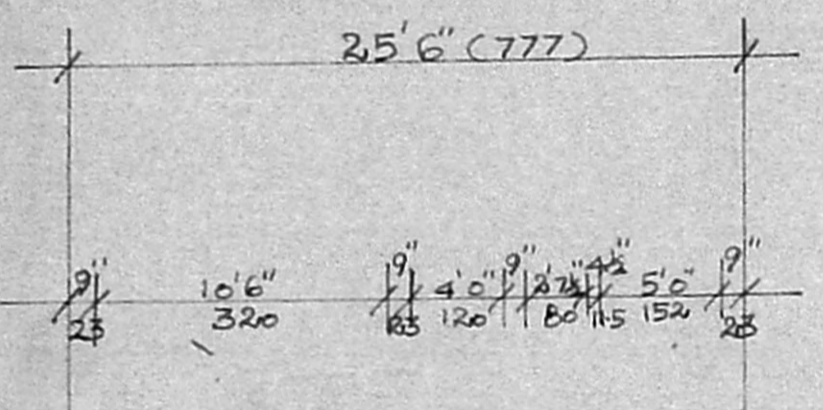 25'6" (777)
9" 10'6" 9" 4'0" 9" 2'7½" 4½" 5'0" 9"
23 320 23 120 80 11.5 152 23